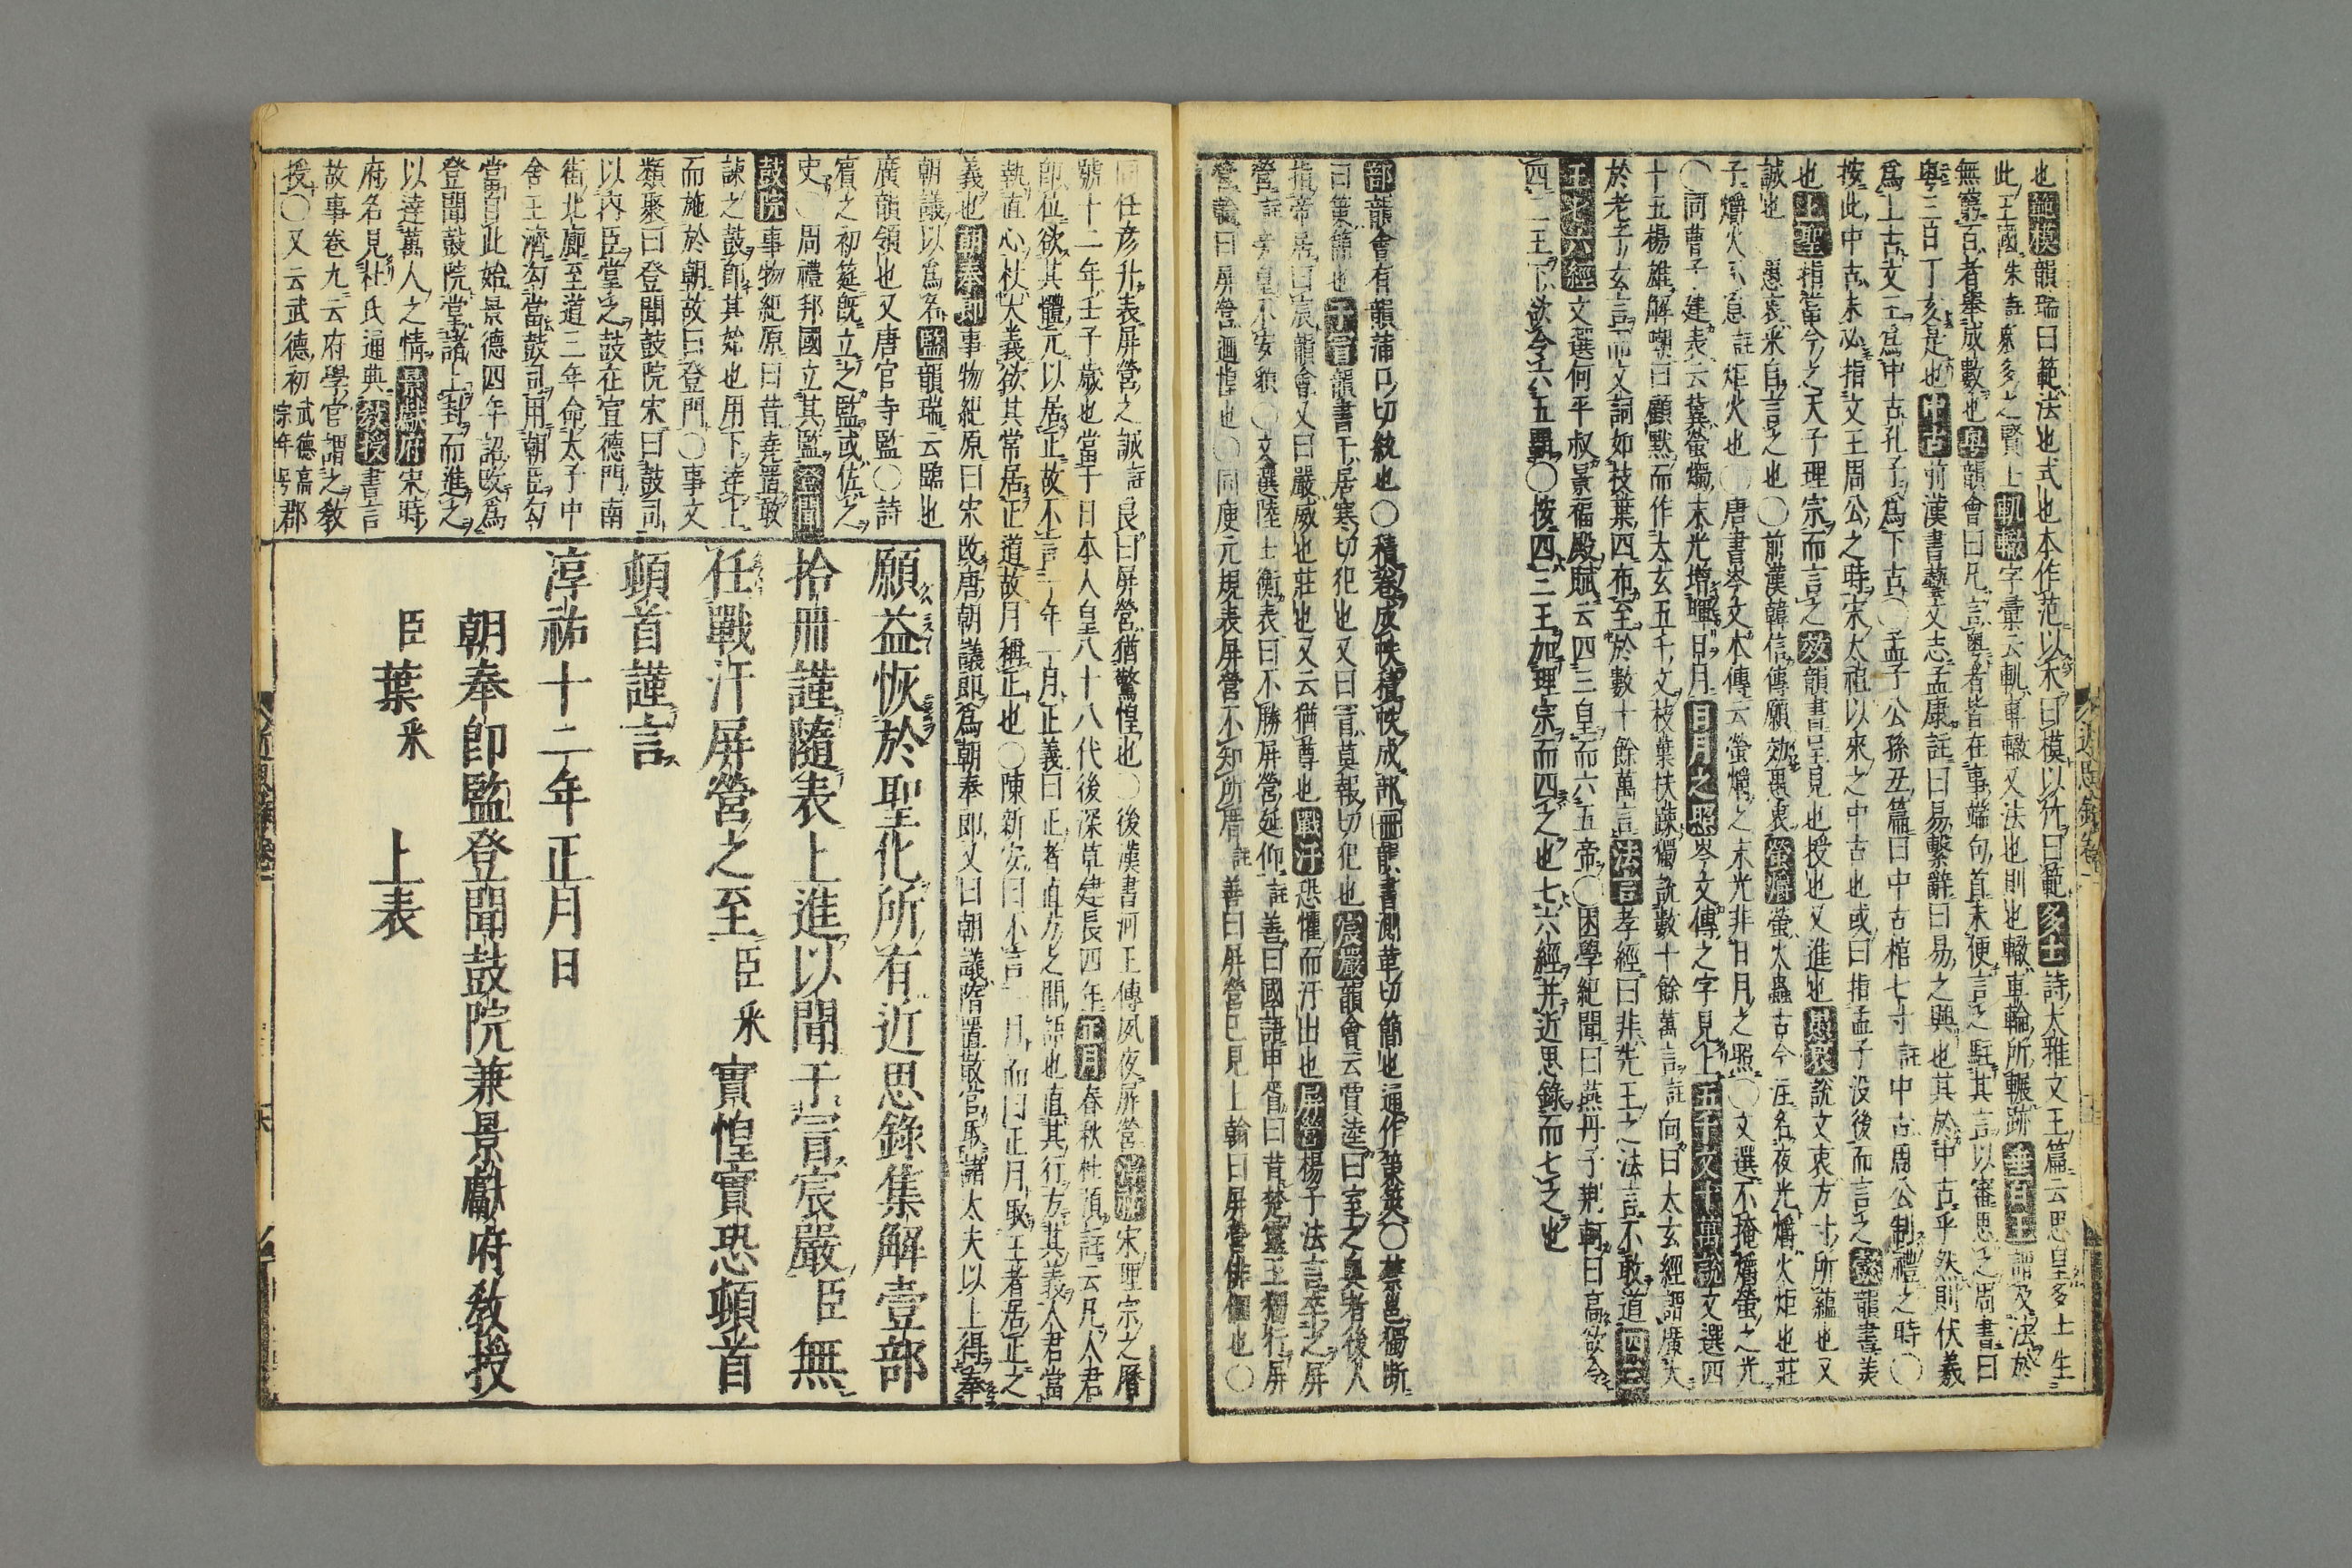 也範模韻瑞曰範法也式也本作范以木曰模以竹曰範多士詩大雅文王篇云思皇多士生
此王國朱註衆多之賢士軌轍字彙云軌車轍又法也則也轍車輪所輾跡
無窮百者擧成數也粤韻會曰凡言粤者皆在事端句首未便言之駐其言以審思之周書曰
粤三日丁亥是也中古前漢書藝文志孟康註曰易繫辭曰易之興也其於中古乎然則伏義
爲上古文王爲中古孔子爲下古〇孟子公孫丑篇曰中古棺七寸註中古周公制禮之時〇
按此中古未必指文王周公之時宋太祖以來之中古也或曰指孟子没後而言之
也上聖指當今之天子理宗而言之效韻書呈見也授也又進也愚衷說文衷方寸所蘊也又
誠也愚衷釆自言之也〇前漢韓信傳願効愚衷螢爝螢火蟲古今注名夜光爝火炬也莊
子爝火不息註炬火也〇唐書岑文本傳云螢爝之末光非日月之照〇文選不掩爝螢之光
〇同曹子建表云冀螢燭末光增輝日月日月之照岑文傳之字見上五千文十萬說文選四
十五楊雄解嘲曰顧默而作太玄五千文枝葉扶疎獨說數十餘萬言註向曰太玄經謂廣大
於老子玄言而文詞如枝葉四布至於數十餘萬言法言孝經曰非先王之法言不敢道四三
王七六經文選何平叔景福殿賦云四三皇而六五帝〇困學紀聞曰燕丹子荆軻曰高欲令
四三王下欲令六五霸〇按四三王加理宗而四之也七六經并近思錄而七之也
部韻會有韻蒲口切統也〇積卷成帙積帙成部冊韻書測革切簡也通作策筴〇蔡邕獨斷
曰策簡也干冒韻書干居寒切犯也又曰冒莫報切犯也扆嚴韻會云賈逵曰室之奥者後人
指帝居曰扆韻會又曰嚴威也莊也又云猶尊也戰汗恐懼而汗出也屏營楊子法言卒之屏
營註旁皇不安貌〇文選陸士衡表曰不勝屏營延仰註善曰國語申胥曰昔楚靈王獨行屏
營論曰屏營迴惶也〇同庾元規表屏營不知所厝註善曰屏營已見上翰曰屏營俳佪也〇
同任彦升表屏營之誠註良曰屏營猶驚惶也〇後漢書河王傳夙夜屏營淳祐宋理宗之曆
號十二年壬子歳也當于日本人皇八十八代後深草建長四年正月春秋杜預註云凡人君
卽位欲其體元以居正故不言一年一月正義曰正者直方之間語也直其行方其義人君當
執直心杖大義欲其常居正道故月稱正也〇陳新安曰不言一月而曰正月取王者居正之
義也朝奉郞事物紀原曰宋改唐朝議郞爲朝奉郞又曰朝議隋置散官取諸太夫以上得奉
朝議以爲名監韻瑞云臨也
廣韻領也又唐官寺監〇詩
賓之初筵旣立之監或佐之
史〇周禮邦國立其監登聞
鼓院事物紀原曰昔堯置敢
諫之鼓卽其始也用下達上
而施於朝故曰登門〇事文
類聚曰登聞鼓院宋曰鼓司
以內臣堂之鼓在宣德門南
街北廊至道三年命太子中
舍王濟勾當鼓司用朝臣勾
當自此始景德四年詔改爲
登聞鼓院堂諸上封而進之
以達萬人之情景獻府宋時
府名見杜氏通典敎授書言
故事卷九云府學官謂之敎
授〇又云武德初武德高宗年号郡
願益恢於聖化所有近思錄集解壹部
拾冊謹隨表上進以聞于冒扆嚴臣無
任戰汗屏營之至臣釆實惶實恐頓首
頓首謹言
淳祐十二年正月日
朝奉郞監登聞鼓院兼景獻府敎授
臣葉釆上表